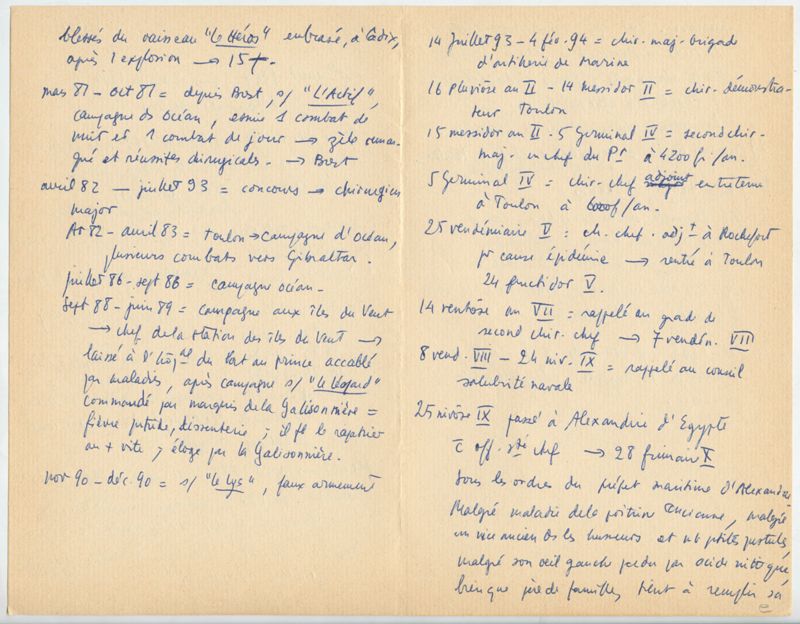 blessés du vaisseau "Le Héros" embrasé, à Cadix,
après 1 explosion → 15 +.
mas 81 - oct 81 = depuis Brest, s/ "L'Actif",
campagne ds Océan, essuie 1 combat de
nuit et 1 combat de jour → zèle remar-
qué et réussites chirurgicales. → Brest
avril 82 - juillet 93 = concours → chirurgien
major
At 82 - avril 83 = Toulon → campagne d'océan,
plusieurs combats vers Gibraltar.
juillet 86 - sept 86 = campagne océan.
Sept 88 - juin 89 = campagne aux îles du Vent
→ chef de la station des îles du Vent →
laissé à l'hôpal du Port au prince accablé
par maladies, après campagne s/ "Le Léopard"
commandé par marquis de la Galissonnière =
fièvre putride, dissenterie ; il ft le rapatrier
au + vite ; éloge par la Galissonnière.
nov 90 - déc. 90 = s/ "Le Lys", faux armement
14 Juillet 93 - 4 fév. 94 = chir. maj. brigade
d'artillerie de Marine
16 Pluviôse an II - 14 messidor II = chir. démonstra-
teur Toulon
15 messidor an II - 5 Germinal IV = second chir-
maj. en chef du Pt à 4200 fr/an.
5 Germinal IV = chir. chef adjoint entretenu
à Toulon à 6000 f/an.
25 vendémiaire V = ch. chef. adjt à Rochefort
pr cause épidémie → rentré à Toulon
24 fructidor V.
14 ventôse an VII = rappelé au grade de
second chir. chef → 7 vendém. VIII
8 vend. VIII - 24 niv. IX = rappelé au conseil
salubrité navale
25 nivôse IX passé à Alexandrie d'Egypte
off. sté chef → 28 frimaire X
sous les ordres du préfet maritime d'Alexandrie
Malgré maladie de la poitrine ancienne, malgré
un vice ancien ds les humeurs et nb ptites pustules,
malgré son oeil gauche perdu par acide nitrique,
bien que père de familles, tient à remplir sa
e